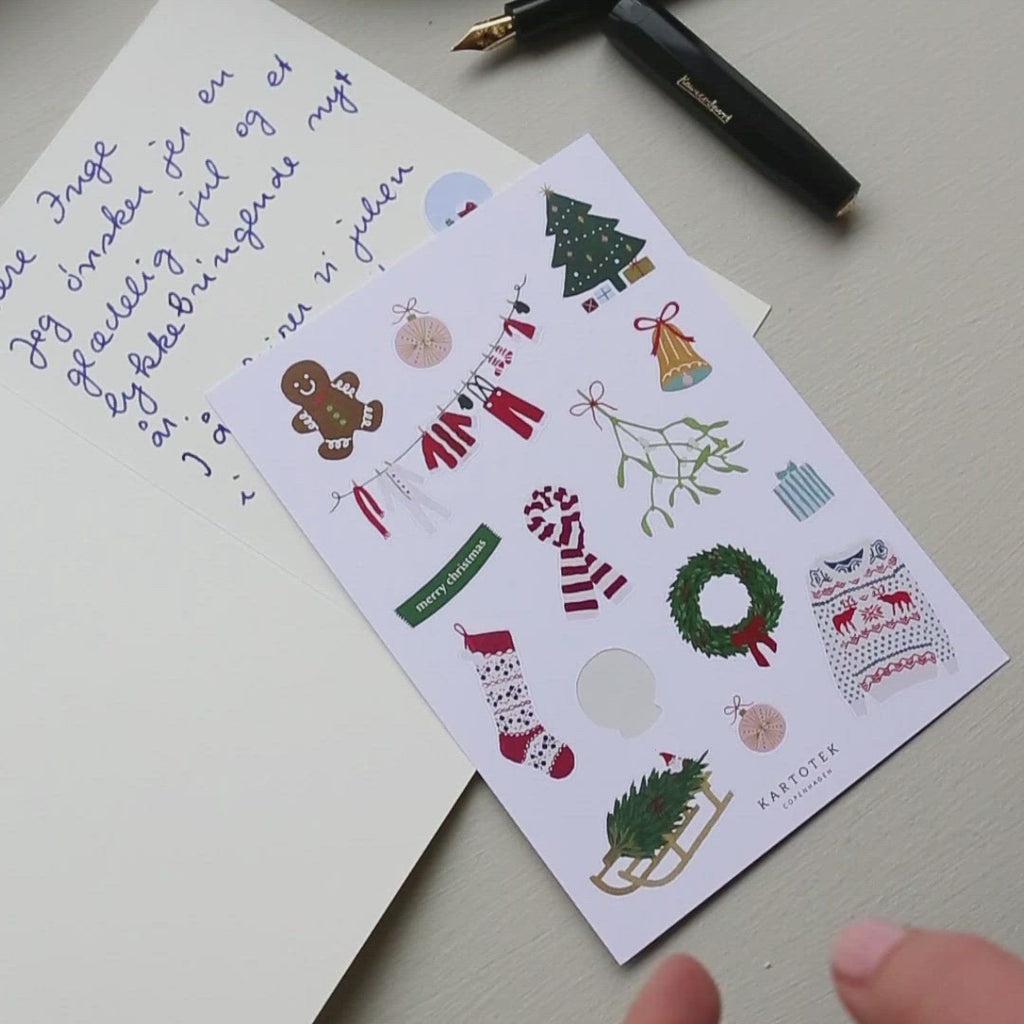 Inge
Jeg ønsker jer en
glædelig jul og et
lykkebringende nyt
år
I år vi julen
i
Kaweco Sport
merry christmas
KARTOTEK
COPENHAGEN